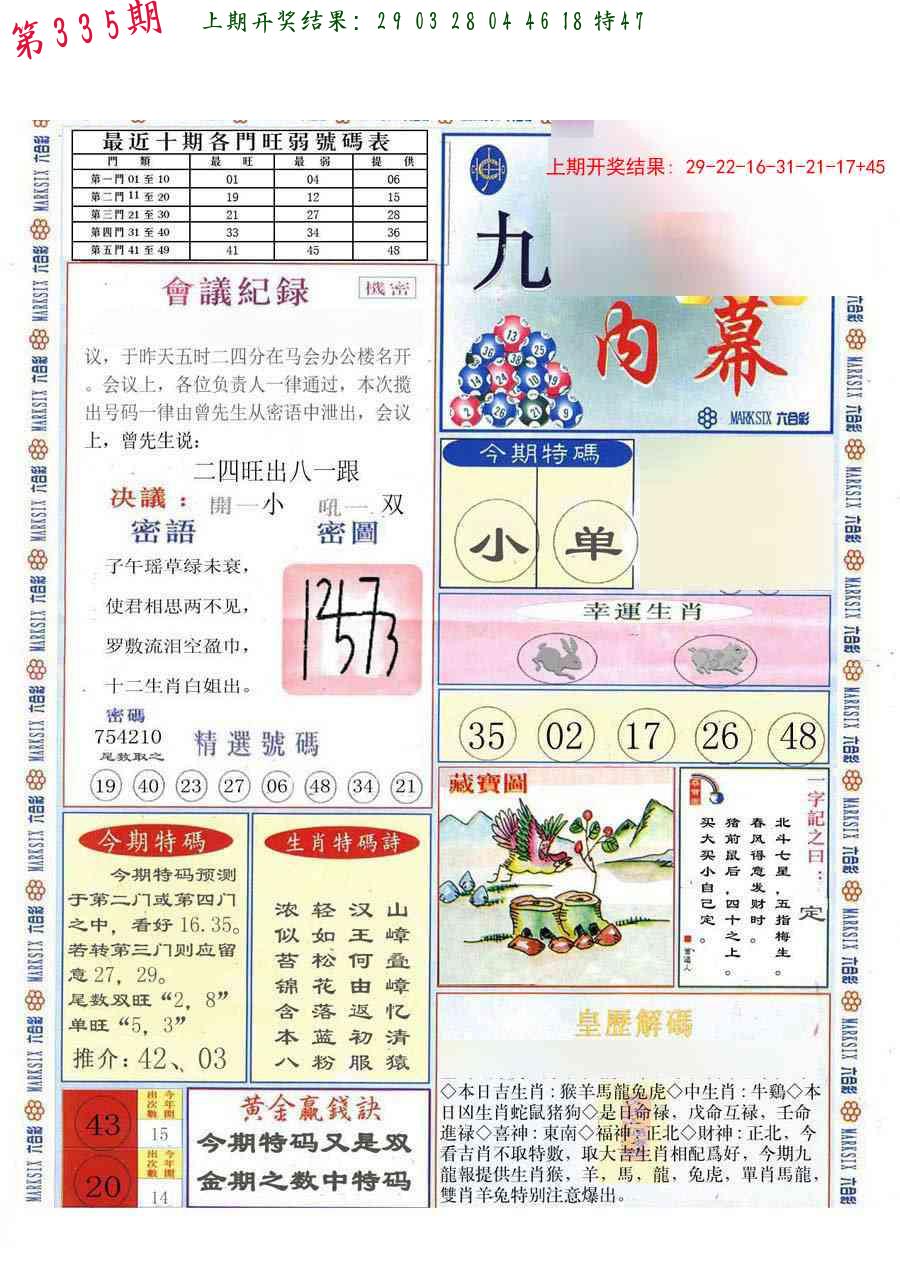 第335期
上期开奖结果：29 03 28 04 46 18 特47
最近十期各門旺弱號碼表
門 類 最 旺 最 弱 提 供
第一門 01 至 10 01 04 06
第二門 11 至 20 19 12 15
第三門 21 至 30 21 27 28
第四門 31 至 40 33 34 36
第五門 41 至 49 41 45 48
會議紀録
機密
议，于昨天五时二四分在马会办公楼名开
。会议上，各位负责人一律通过，本次攬
出号码一律由曾先生从密语中泄出，会议
上，曾先生说：
二四旺出八一跟
决議： 開一小 吼一 双
密語
密圖
子午瑶草绿未衰，
使君相思两不见，
罗敷流泪空盈巾，
十二生肖白姐出。
密碼
754210
尾数取之
精選號碼
19 40 23 27 06 48 34 21
今期特碼
今期特码预测
于第二门或第四门
之中，看好 16.35。
若转第三门则应留
意 27，29。
尾数双旺“2，8”
单旺“5，3”
推介：42、03
生肖特碼詩
浓轻汉山
似如王嶂
苔松何叠
锦花由嶂
含落返忆
本蓝初清
八粉服猿
43
今年開
出次數
15
20
今年開
出次數
14
黄金赢錢訣
今期特码又是双
金期之数中特码
上期开奖结果：29-22-16-31-21-17+45
九
内幕
13
36 38 25
14 24 10 19
2 26 21 9
MARKSIX 六合彩
今期特碼
小 单
幸運生肖
35 02 17 26 48
藏寶圖
一字記之曰：
定
北斗七星，五指梅生。
春风得意发财时。
猪前鼠后，四十之上。
买大买小自已定。
皇歷解碼
◇本日吉生肖：猴羊馬龍兔虎◇中生肖：牛鷄◇本
日凶生肖蛇鼠猪狗◇是日命禄，戊命互禄，壬命
進禄◇喜神：東南◇福神：正北◇財神：正北，今
看吉肖不取特數，取大吉生肖相配爲好，今期九
龍報提供生肖猴，羊，馬，龍，兔虎，單肖馬龍，
雙肖羊兔特别注意爆出。